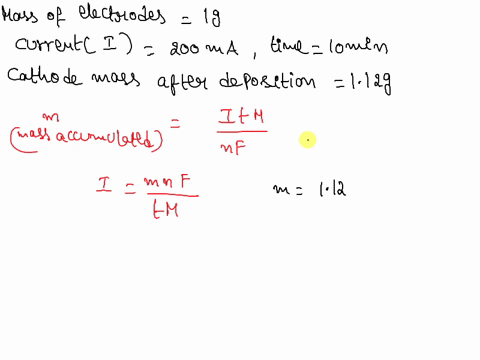 Mass of electrodes = 1g
current (I) = 200 mA, time = 10 min
Cathode mass after deposition = 1.12g
m (mass accumulated) = ItM / nF
I = mnF / tM m = 1.12